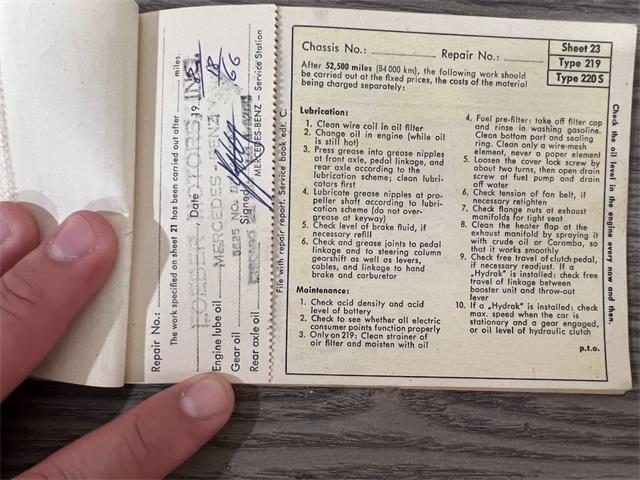 Repair No.:
The work specified on sheet 21 has been carried out after miles.
LOEBER MOTORS, INC.
, Date 19
Engine lube oil
MERCEDES-BENZ
18
Gear oil
5625 NO. B
66
Signed
Rear axle oil
MERCEDES-BENZ – Service Station
File with repair report. Service book edt. C.
Chassis No.: Repair No.:
Sheet 23
Type 219
Type 220 S
After 52,500 miles (84 000 km), the following work should
be carried out at the fixed prices, the costs of the material
being charged separately:
Lubrication:
1. Clean wire coil in oil filter
2. Change oil in engine (while oil
is still hot)
3. Press grease into grease nipples
at front axle, pedal linkage, and
rear axle according to the
lubrication scheme; clean lubri-
cators first
4. Lubricate grease nipples at pro-
peller shaft according to lubri-
cation scheme (do not over-
grease at keyway)
5. Check level of brake fluid, if
necessary refill
6. Check and grease joints to pedal
linkage and to steering column
gearshift as well as levers,
cables, and linkage to hand
brake and carburetor
Maintenance:
1. Check acid density and acid
level of battery
2. Check to see whether all electric
consumer points function properly
3. Only on 219: Clean strainer of
air filter and moisten with oil
4. Fuel pre-filter: take off filter cap
and rinse in washing gasoline.
Clean bottom part and sealing
ring. Clean only a wire-mesh
element, never a paper element
5. Loosen the cover lock screw by
about two turns, then open drain
screw of fuel pump and drain
off water
6. Check tension of fan belt, if
necessary retighten
7. Check flange nuts at exhaust
manifolds for tight seat
8. Clean the heater flap at the
exhaust manifold by spraying it
with crude oil or Caramba, so
that it works smoothly
9. Check free travel of clutch pedal,
if necessary readjust. If a
„Hydrak" is installed: check free
travel of linkage between
booster unit and throw-out
lever
10. If a „Hydrak" is installed: check
max. speed when the car is
stationary and a gear engaged,
or oil level of hydraulic clutch
p.t.o.
Check the oil level in the engine every now and then.